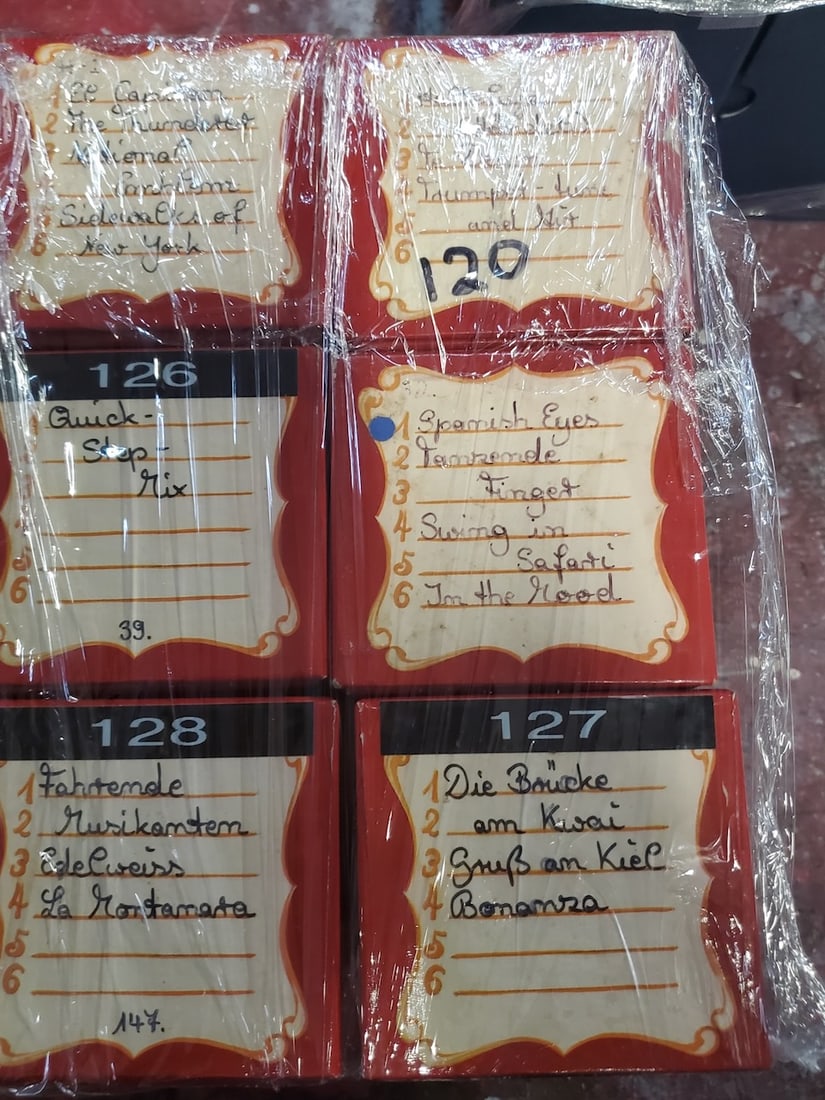 1 El Capitan
2 The Thunderer
3 National
4 Emblem
5 Sidewalks of
6 New York
2
3
4 Trumpet-tune
5 and Air
6
120
126
Quick-
Step-
Mix
5
6
39.
1 Spanish Eyes
2 Tanzende
3 Finger
4 Swing in
5 Safari
6 In the Mood
128
1 Fahrende
2 Musikanten
3 Edelweiss
4 La Montanara
5
6
147.
127
1 Die Brücke
2 am Kwai
3 Gruß an Kiel
4 Bonanza
5
6